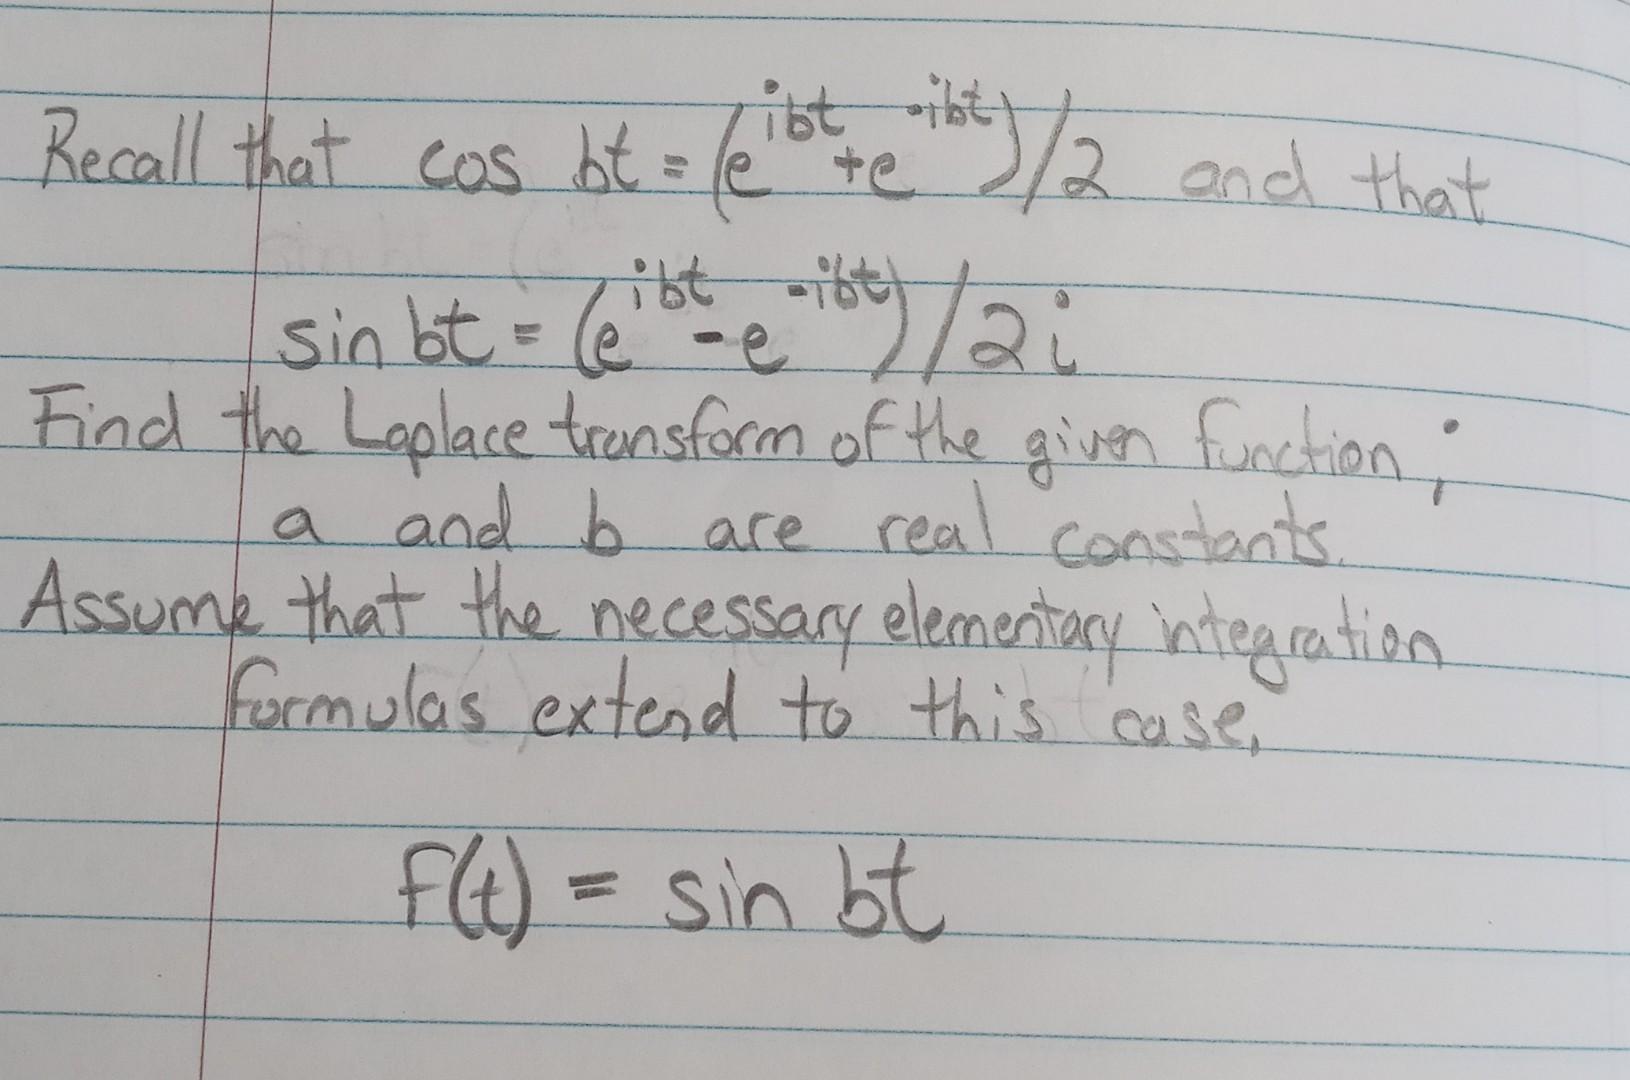 Recall that cos bt = (e^{ibt} + e^{-ibt})/2 and that
sin bt = (e^{ibt} - e^{-ibt})/2i
Find the Laplace transform of the given function;
a and b are real constants.
Assume that the necessary elementary integration
formulas extend to this case.
f(t) = sin bt